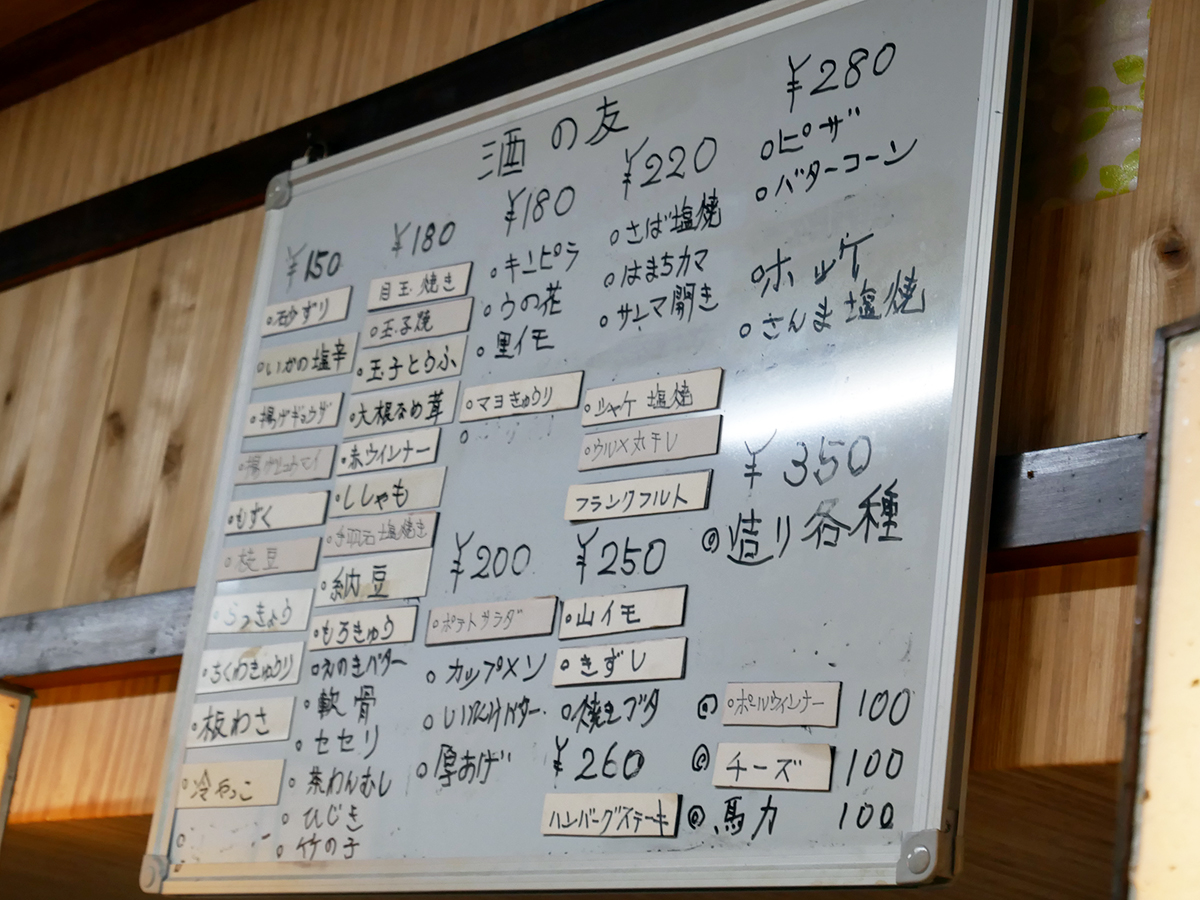 酒の友
¥150
○砂ずり
○いかの塩辛
○揚げギョウザ
○もずく
○枝豆
○らっきょう
○ちくわきゅうり
○板わさ
○冷やっこ
¥180
目玉焼き
○玉子焼
○玉子とうふ
○大根なめ茸
○赤ウインナー
○ししゃも
○手羽先塩焼き
○納豆
○もろきゅう
○えのきバター
○軟骨
○セセリ
○茶わんむし
○ひじき
○竹の子
¥180
○キンピラ
○うの花
○里イモ
○マヨきゅうり
¥200
○ポテトサラダ
○カップメン
○しいたけバター
○厚あげ
¥220
○さば塩焼
○はまちカマ
○サンマ開き
○シャケ塩焼
○ウルメ丸干し
フランクフルト
¥250
○山イモ
○きずし
○焼きブタ
¥260
ハンバーグステーキ
¥280
○ピザ
○バターコーン
○ホッケ
○さんま塩焼
¥350
◎造り各種
◎○ポールウィンナー 100
◎チーズ 100
◎馬力 100